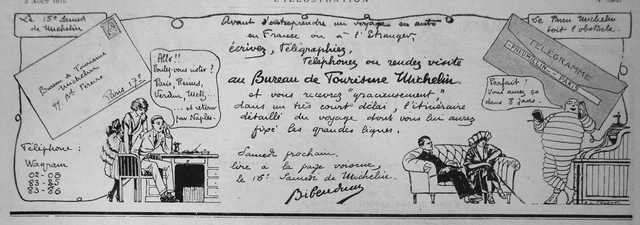 2 Août 1919
L'ILLUSTRATION
Le 15e Samedi
de Michelin
Bureau de Tourisme
Michelin
99 Bd Pereire
Paris 17e
Téléphone :
Wagram
02-08
83-85
83-86
Allô !!
Voulez-vous noter ?
Paris, Reims,
Verdun, Metz...
... et retour
par Naples.
Avant d'entreprendre un voyage en auto
en France ou à l'Etranger,
écrivez, Télégraphiez,
Téléphonez ou rendez visite
au Bureau de Tourisme Michelin
et vous recevrez "gracieusement"
dans un très court délai, l'itinéraire
détaillé du voyage dont vous lui aurez
fixé les grandes lignes.
Samedi prochain,
lire à la page voisine,
le 16e Samedi de Michelin.
Bibendum
Le Pneu Michelin
boit l'obstacle.
TÉLÉGRAMME
PNEUMICHELIN PARIS
Parfait !
Vous aurez ça
dans 8 jours.